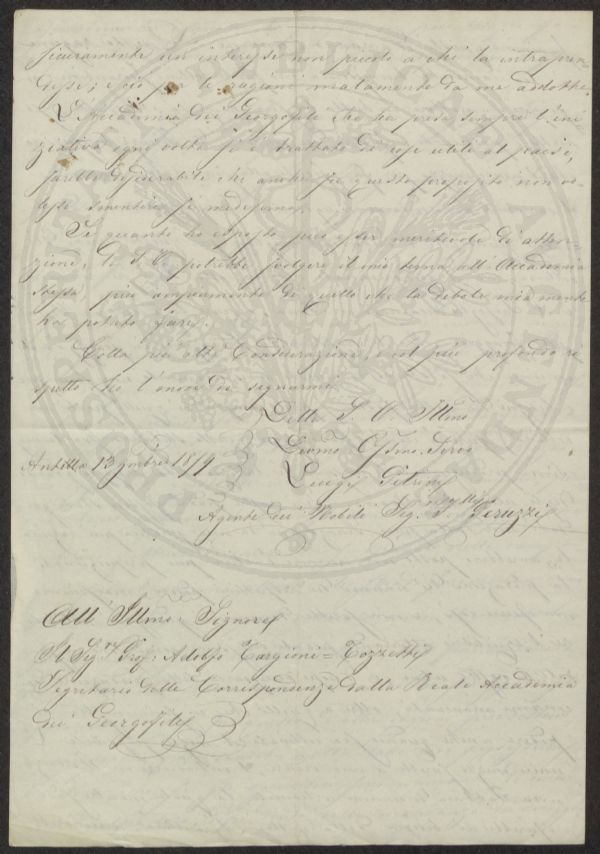 sicuramente un interesse non piccolo a chi la intrapren-
desse; e ciò per le ragioni malamente da me addotte.
L'Accademia dei Georgofili che ha preso sempre l'ini-
ziativa ogni volta si è trattato di cose utili al paese,
sarebbe desiderabile che anche su questo proposito non vo-
lesse smentire se medesima.
Se quanto ho esposto può esser meritevole di atten-
zione, la S. V. potrebbe svolgere il mio tema all'Accademia
stessa più ampiamente di quello che la debole mia mente
ha potuto fare.
Colla più alta Considerazione, e col più profondo ri-
spetto ho l'onore di segnarmi
Della S. V. Illma
Devmo Servo
Luigi
Antella 13 9mbre
Agente dei Nobili Sig. Peruzzi
All' Illmo Signore
Il Sigr Prof: Adolfo Targioni=Tozzetti
Segretario delle Corrispondenze della Reale Accademia
dei Georgofili
PROSPERITATI PUBLICAE AUGENDAE